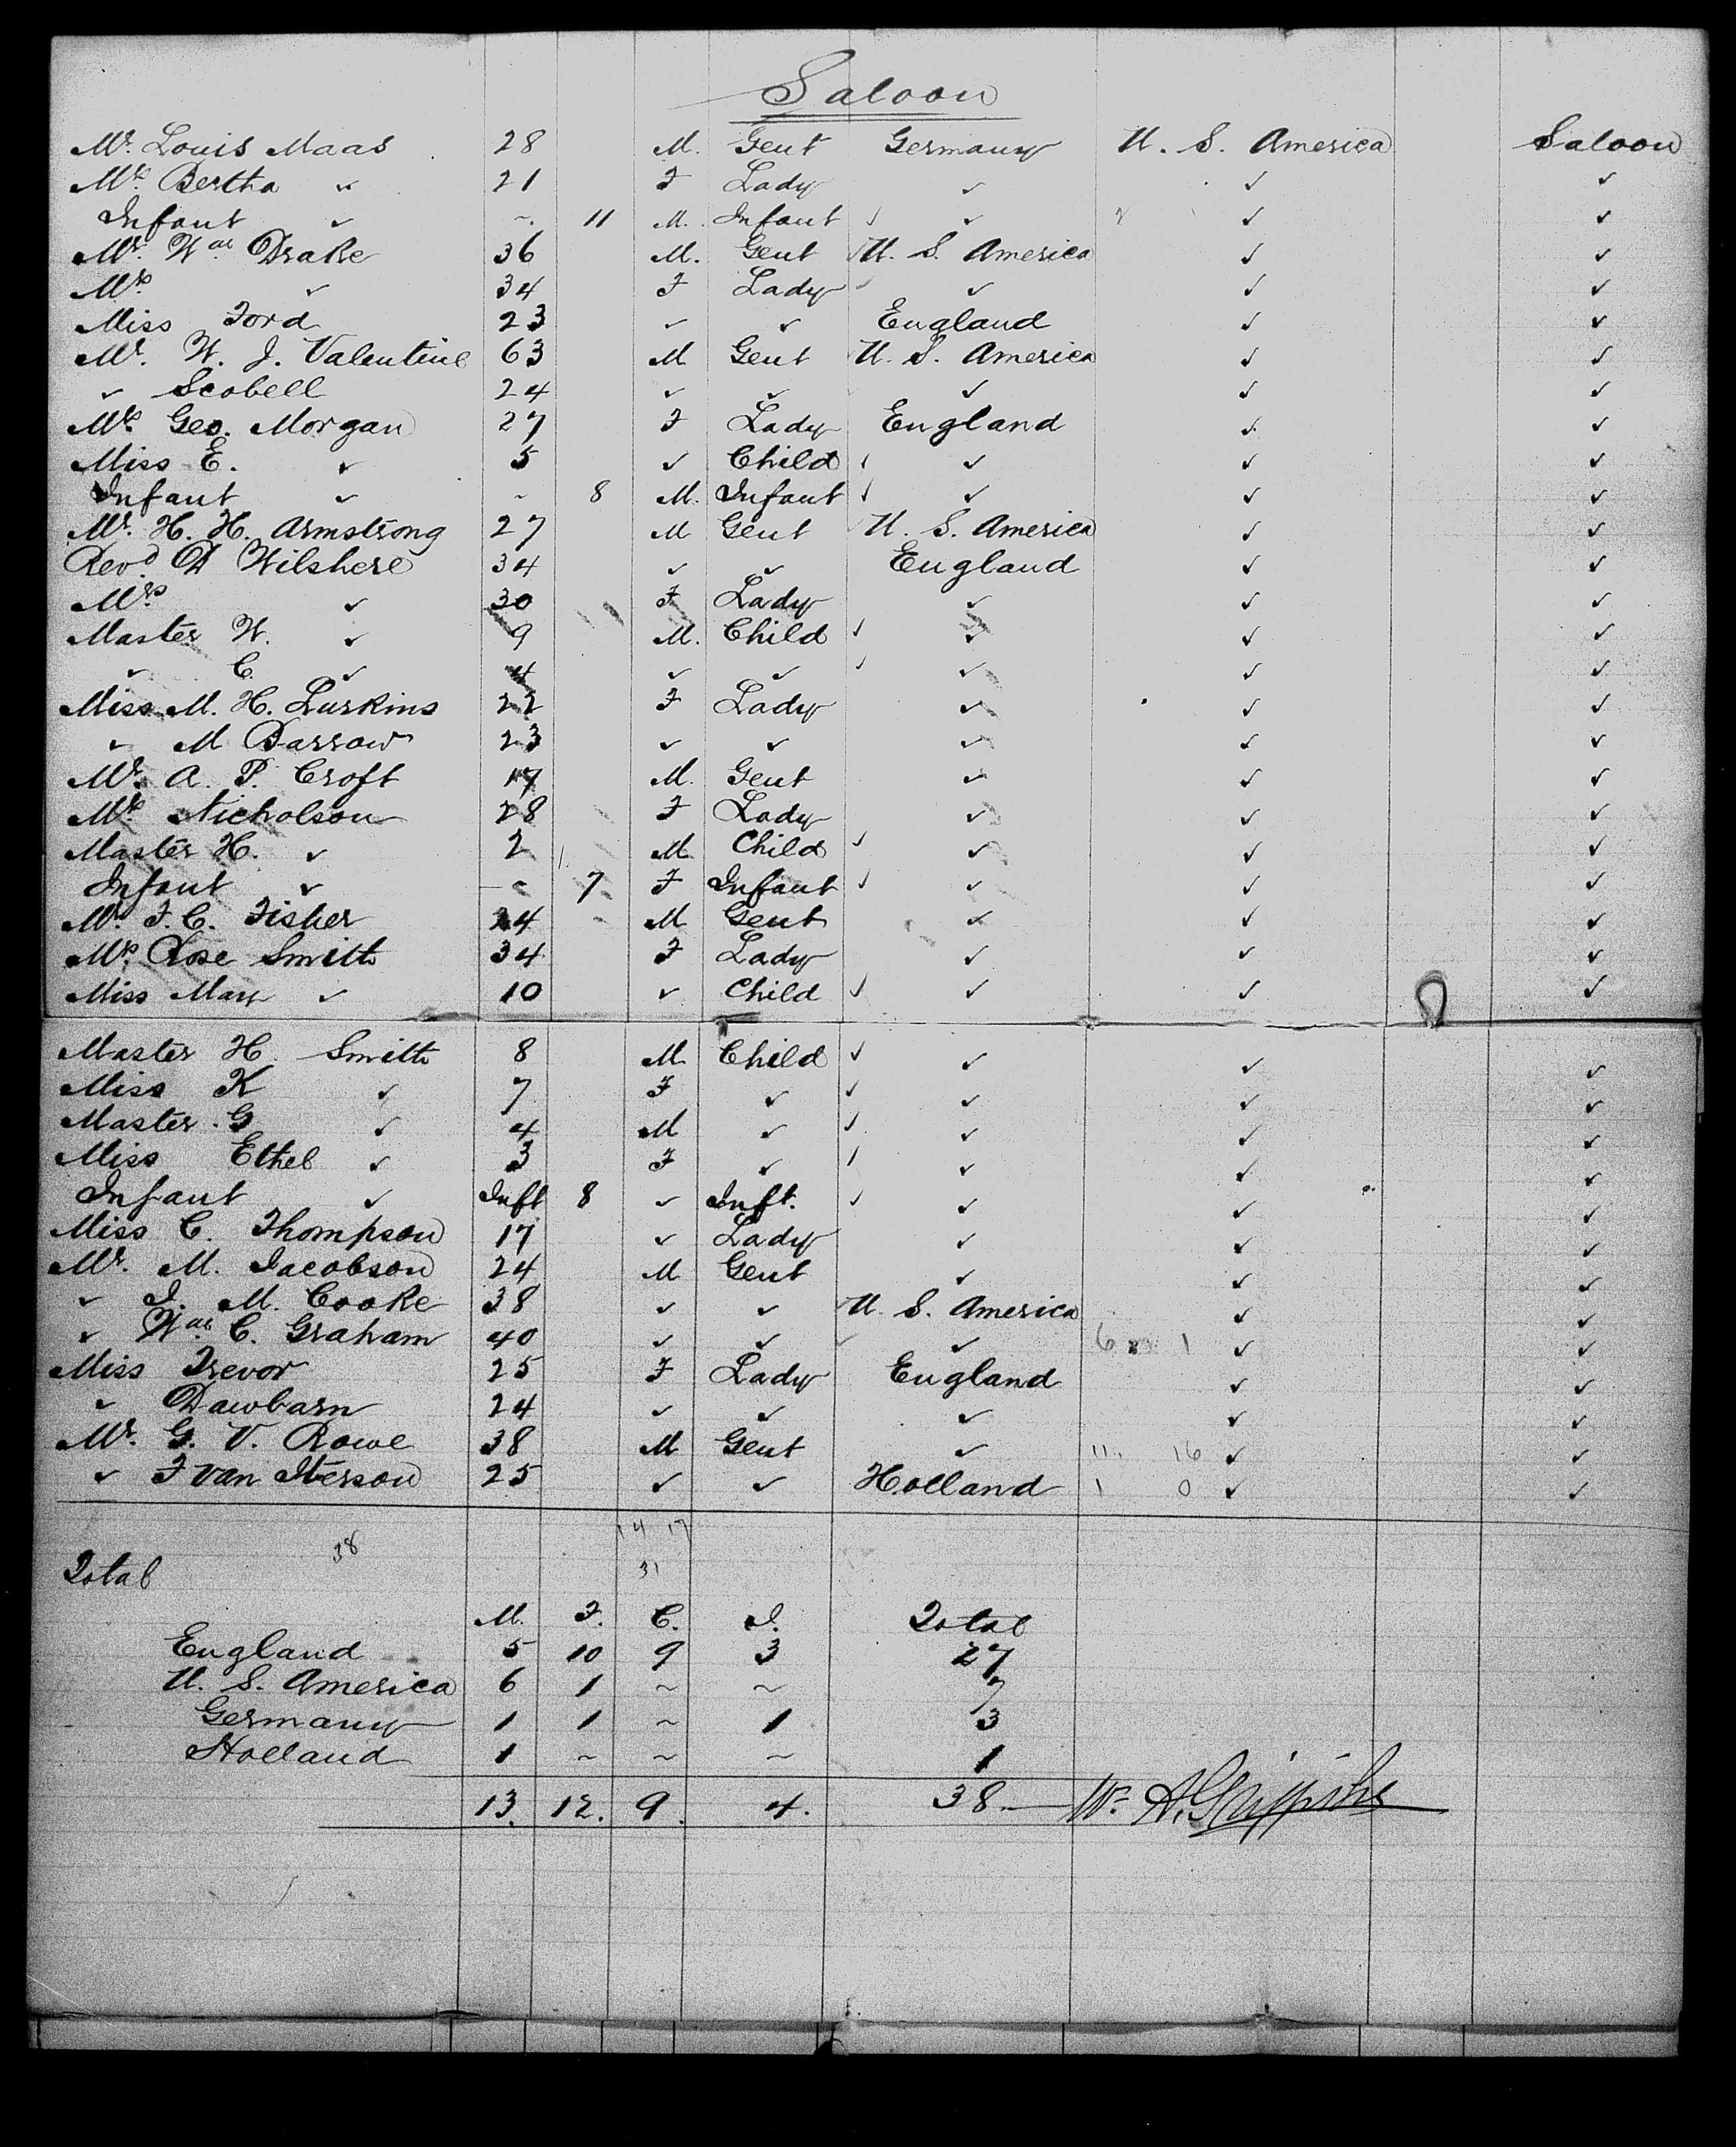 Saloon
Mr. Louis Maas 28 M. Gent Germany U. S. America Saloon
Mrs. Bertha ✓ 21 F Lady ✓ ✓ ✓
Infant ✓ ~ 11 M. Infant ✓ ✓ ✓ ✓
Mr. Wm. Drake 36 M. Gent U. S. America ✓ ✓
Mrs ✓ 34 F Lady ✓ ✓ ✓
Miss Ford 23 ✓ ✓ England ✓ ✓
Mr. W. J. Valentine 63 M Gent U. S. America ✓ ✓
✓ Scobell 24 ✓ ✓ ✓ ✓ ✓
Mrs Geo. Morgan 27 F Lady England ✓ ✓
Miss E. ✓ 5 ✓ Child ✓ ✓ ✓ ✓
Infant ✓ ~ 8 M. Infant ✓ ✓ ✓ ✓
Mr. H. H. Armstrong 27 M Gent U. S. America ✓ ✓
Revd D Wilshere 34 ✓ ✓ England ✓ ✓
Mrs. ✓ 30 F Lady ✓ ✓ ✓
Master W. ✓ 9 M. Child ✓ ✓ ✓ ✓
✓ C. ✓ 4 ✓ ✓ ✓ ✓ ✓ ✓
Miss M. H. Lurkins 22 F Lady ✓ ✓ ✓
✓ M Barrow 23 ✓ ✓ ✓ ✓ ✓
Mr. A. P. Croft 17 M. Gent ✓ ✓ ✓
Mrs Nicholson 28 F Lady ✓ ✓ ✓
Master H. ✓ 2 M Child ✓ ✓ ✓ ✓
Infant ✓ ~ 7 F Infant ✓ ✓ ✓ ✓
Mr. F. C. Fisher 24 M Gent ✓ ✓ ✓
Mrs. Rose Smith 34 F Lady ✓ ✓ ✓
Miss Mary ✓ 10 ✓ Child ✓ ✓ ✓ ✓
Master H. Smith 8 M. Child ✓ ✓ ✓ ✓
Miss K ✓ 7 F ✓ ✓ ✓ ✓ ✓
Master G ✓ 4 M ✓ ✓ ✓ ✓ ✓
Miss Ethel ✓ 3 F ✓ ✓ ✓ ✓
Infant ✓ Inft 8 ✓ Inft. ✓ ✓ ✓ ✓
Miss C. Thompson 17 ✓ Lady ✓ ✓ ✓
Mr. M. Jacobson 24 M Gent ✓ ✓ ✓
✓ J. M. Cooke 38 ✓ ✓ U. S. America ✓ ✓
✓ Wm. C. Graham 40 ✓ ✓ ✓ 6 1 ✓ ✓
Miss Trevor 25 F Lady England ✓ ✓
✓ Dawbarn 24 ✓ ✓ ✓ ✓ ✓
Mr. G. V. Rowe 38 M Gent ✓ 11 16 ✓ ✓
✓ F van Iterson 25 ✓ ✓ Holland 1 0 ✓ ✓
14 17
Total 38 31
M. F. C. I. Total
England 5 10 9 3 27
U. S. America 6 1 ~ ~ 7
Germany 1 1 ~ 1 3
Holland 1 ~ ~ ~ 1
13. 12. 9. 4. 38. W. A. Griffiths